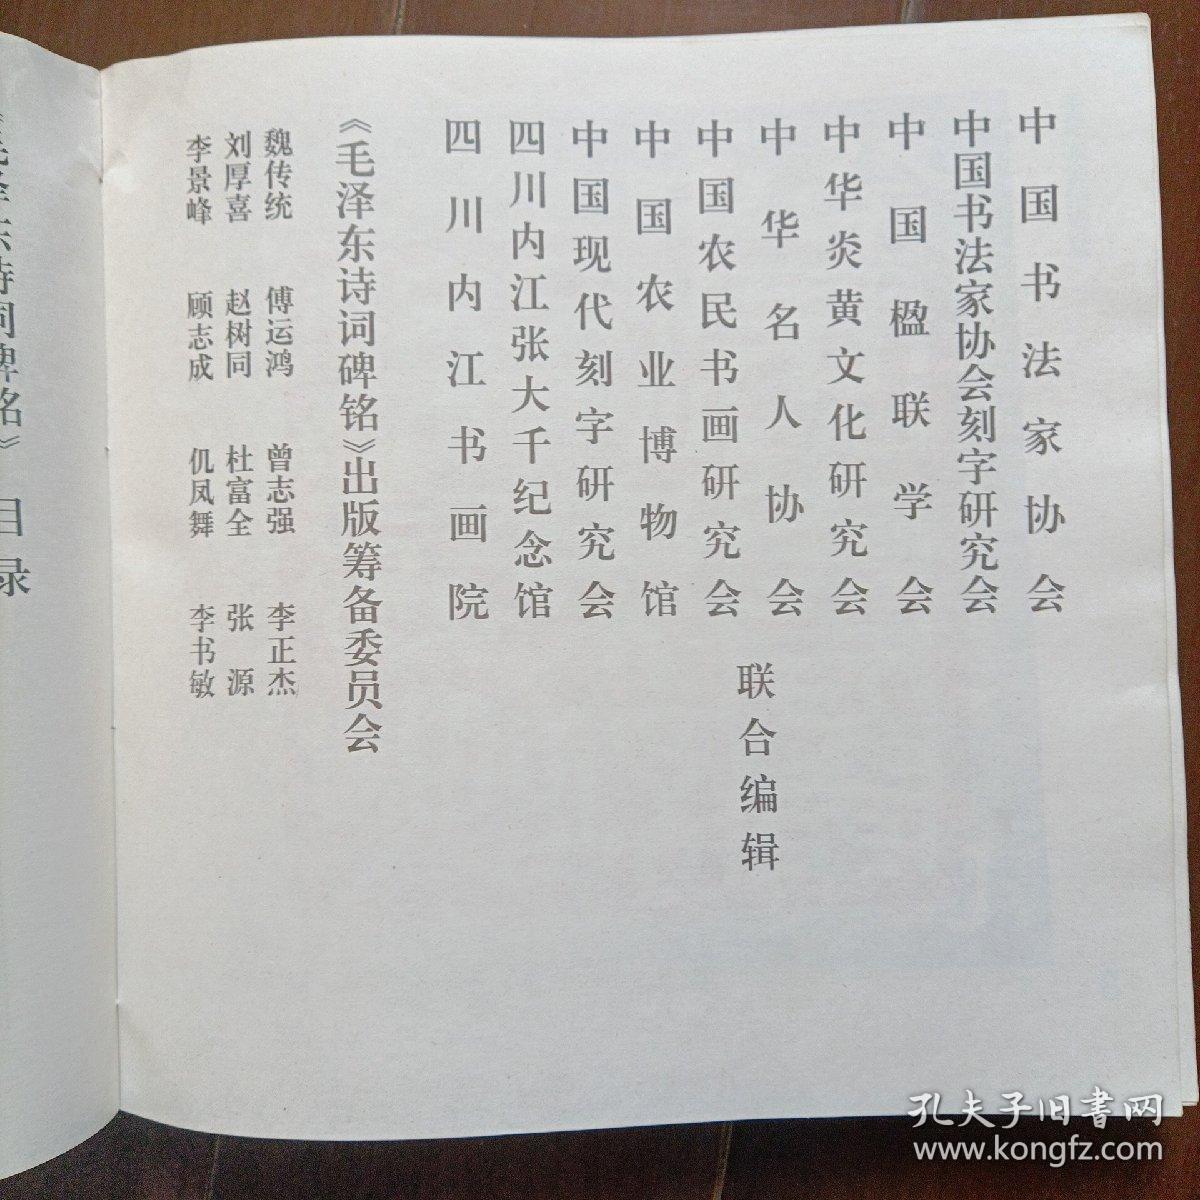 中国书法家协会
中国书法家协会刻字研究会
中国楹联学会
中华炎黄文化研究会
中华名人协会
中国农民书画研究会
中国农业博物馆
中国现代刻字研究会
四川内江张大千纪念馆
四川内江书画院
联合编辑
《毛泽东诗词碑铭》出版筹备委员会
魏传统 傅运鸿 曾志强 李正杰
刘厚喜 赵树同 杜富全 张源
李景峰 顾志成 仉凤舞 李书敏
《毛泽东诗词碑铭》目录
孔夫子旧書网
www.kongfz.com